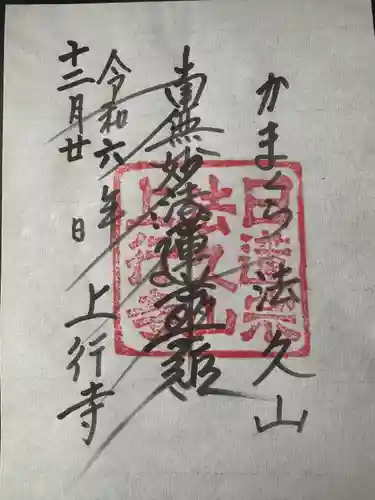 かまくら法久山
南無妙法蓮華経
上行寺
令和六年
十二月廿日
日蓮宗
法久山
上行寺